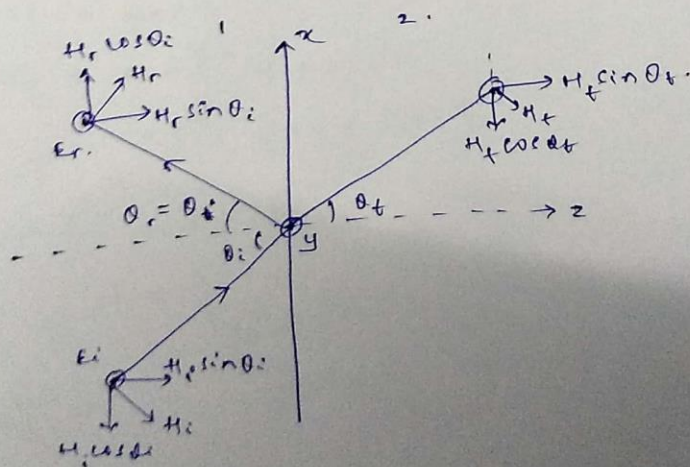 1
2.
x
H_r cosθ_i
H_r
H_r sinθ_i
E_r.
H_t sinθ_t.
H_t
H_t cosθ_t
θ_r = θ_i
θ_i
θ_t
z
y
E_i
H_i sinθ_i
H_i
H_i cosθ_i